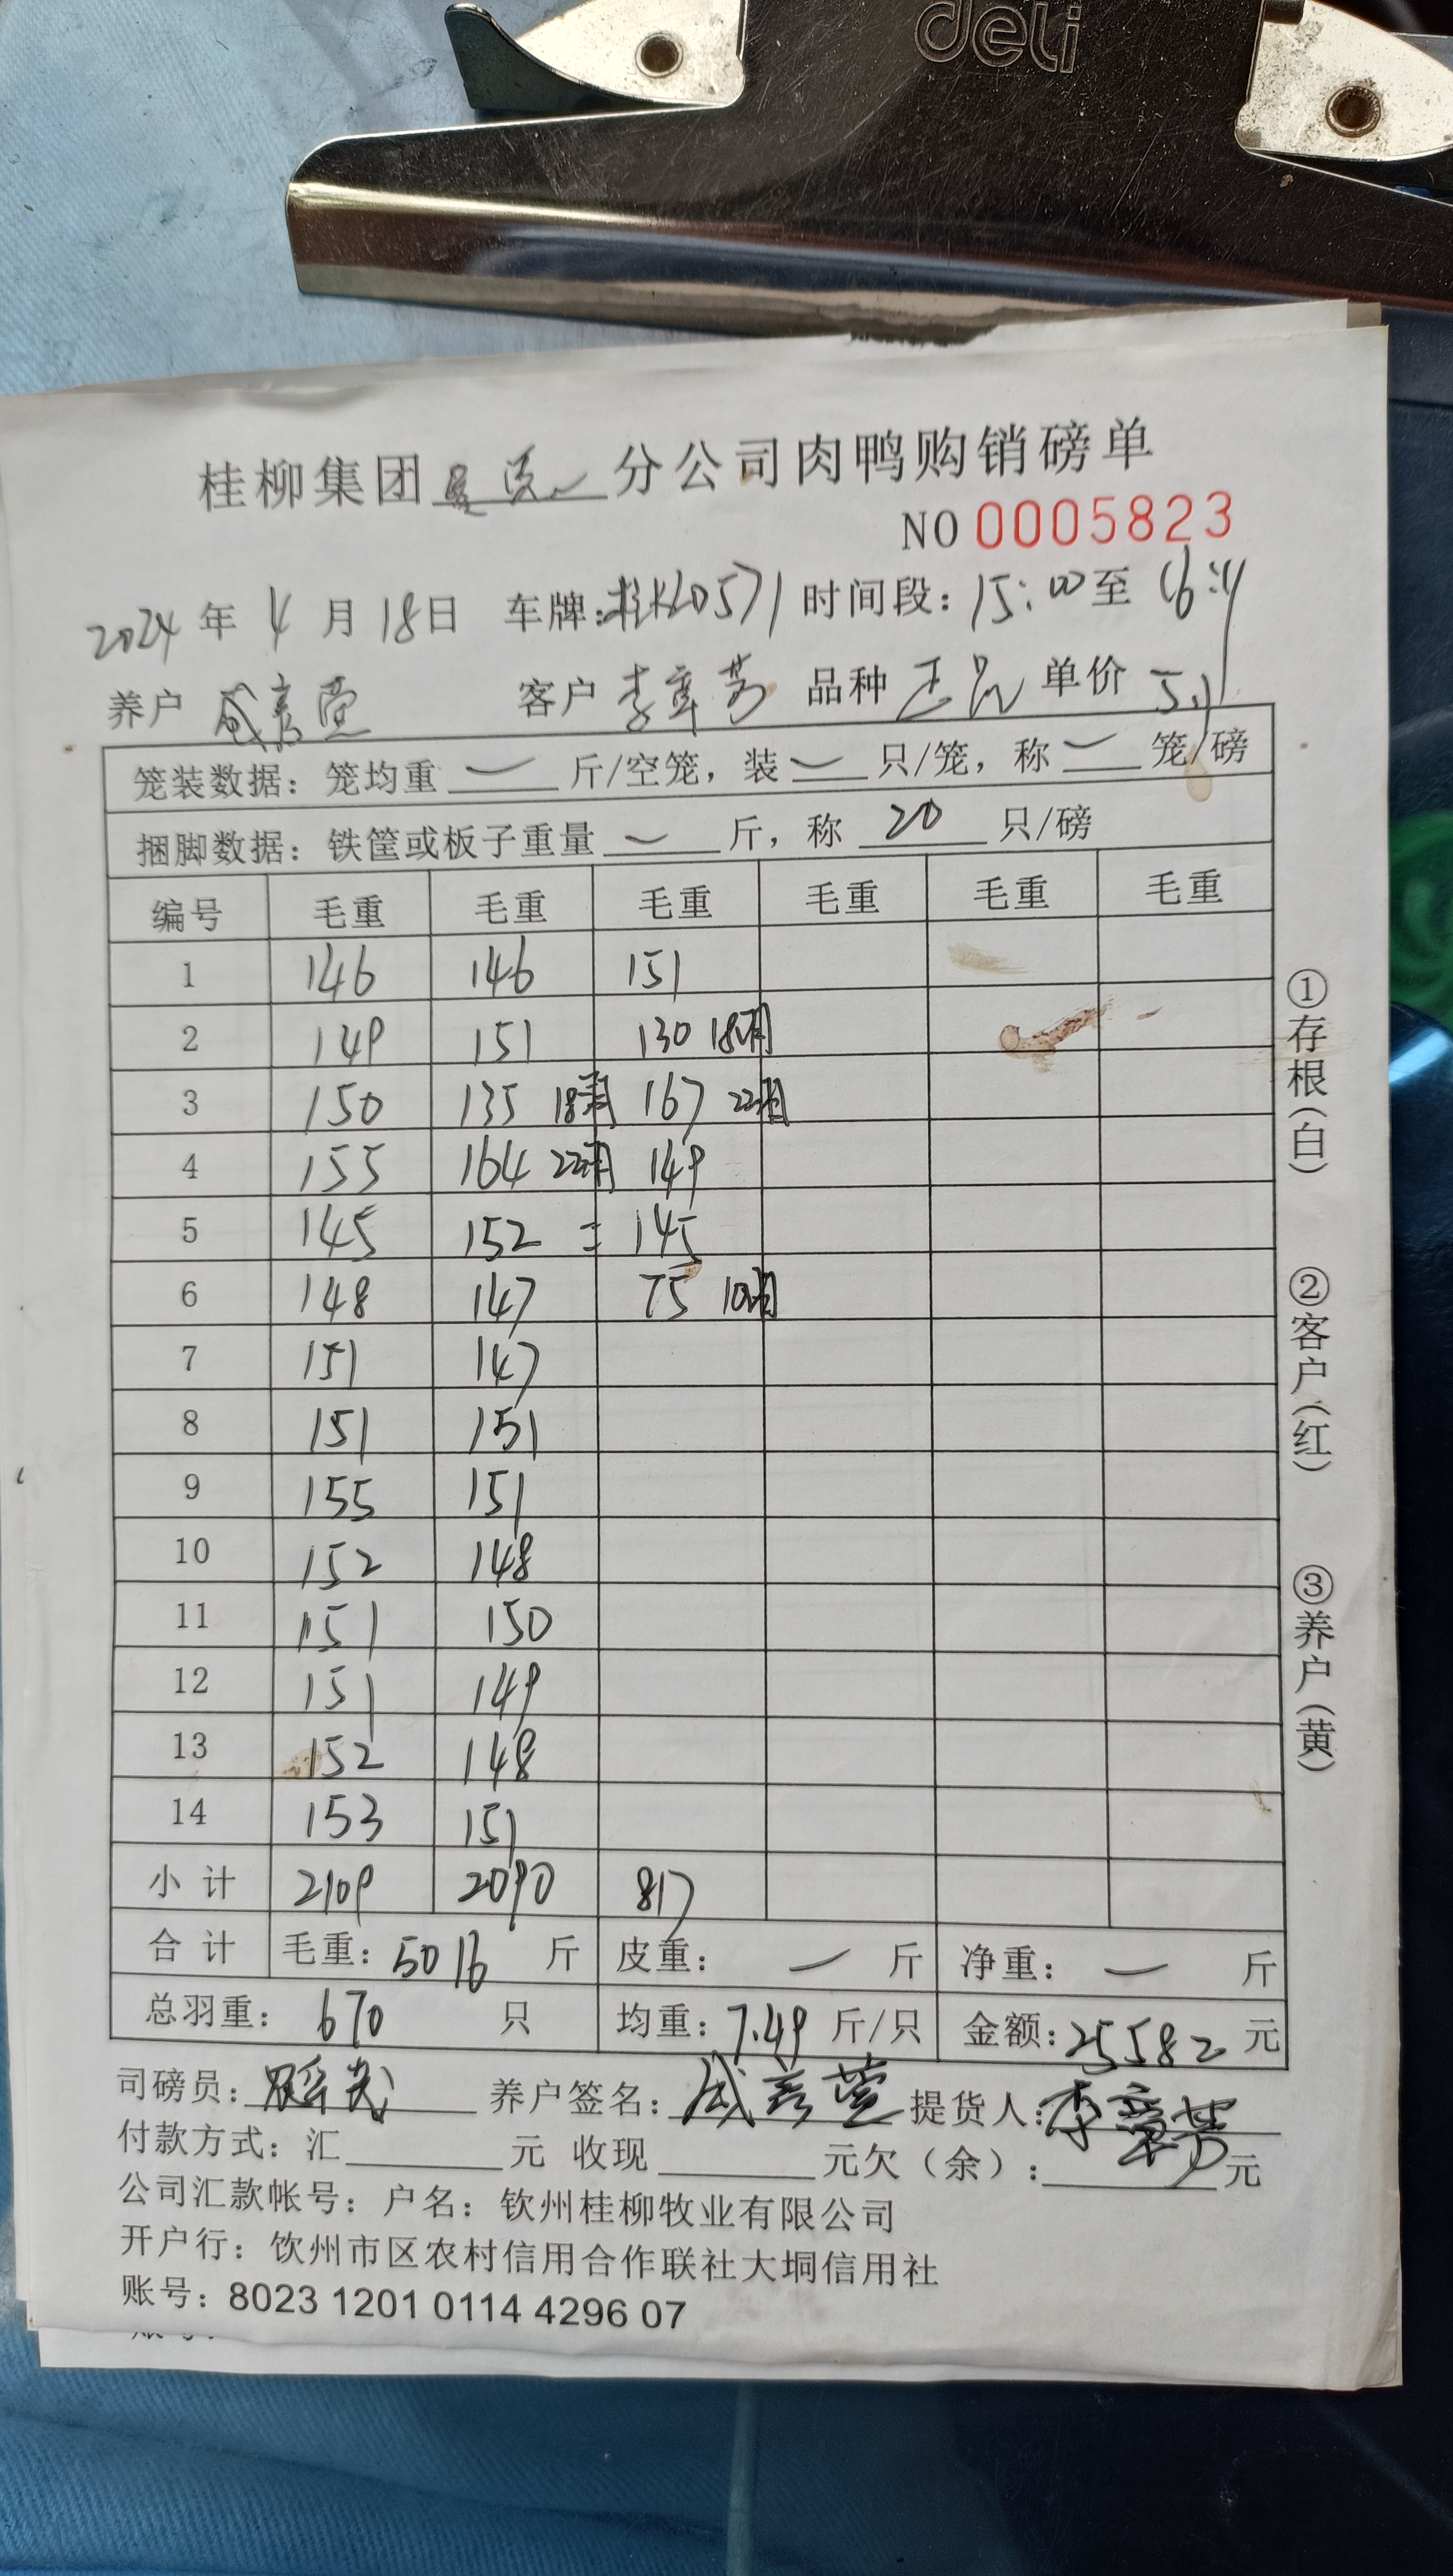 deli
桂柳集团 分公司肉鸭购销磅单
NO 0005823
2024年 4月 18日 车牌:桂KL0571 时间段：15:00至
养户 客户 李章芳 品种 正品 单价 5.1
笼装数据：笼均重 — 斤/空笼，装 — 只/笼，称 — 笼/磅
捆脚数据：铁筐或板子重量 — 斤，称 20 只/磅
编号 毛重 毛重 毛重 毛重 毛重 毛重
1 146 146 151
2 149 151 130 18只
3 150 135 18只 167 22只
4 155 164 22只 149
5 145 152 = 145
6 148 147 75 10只
7 151 147
8 151 151
9 155 151
10 152 148
11 151 150
12 151 149
13 152 148
14 153 151
小计 2109 2090 817
合计 毛重：5016 斤 皮重： — 斤 净重： — 斤
总羽重：670 只 均重：7.49 斤/只 金额：25582 元
司磅员： 养户签名： 提货人：李章芳
付款方式：汇 元 收现 元欠（余）： 元
公司汇款帐号：户名：钦州桂柳牧业有限公司
开户行：饮州市区农村信用合作联社大垌信用社
账号：8023 1201 0114 4296 07
①存根（白）
②客户（红）
③养户（黄）